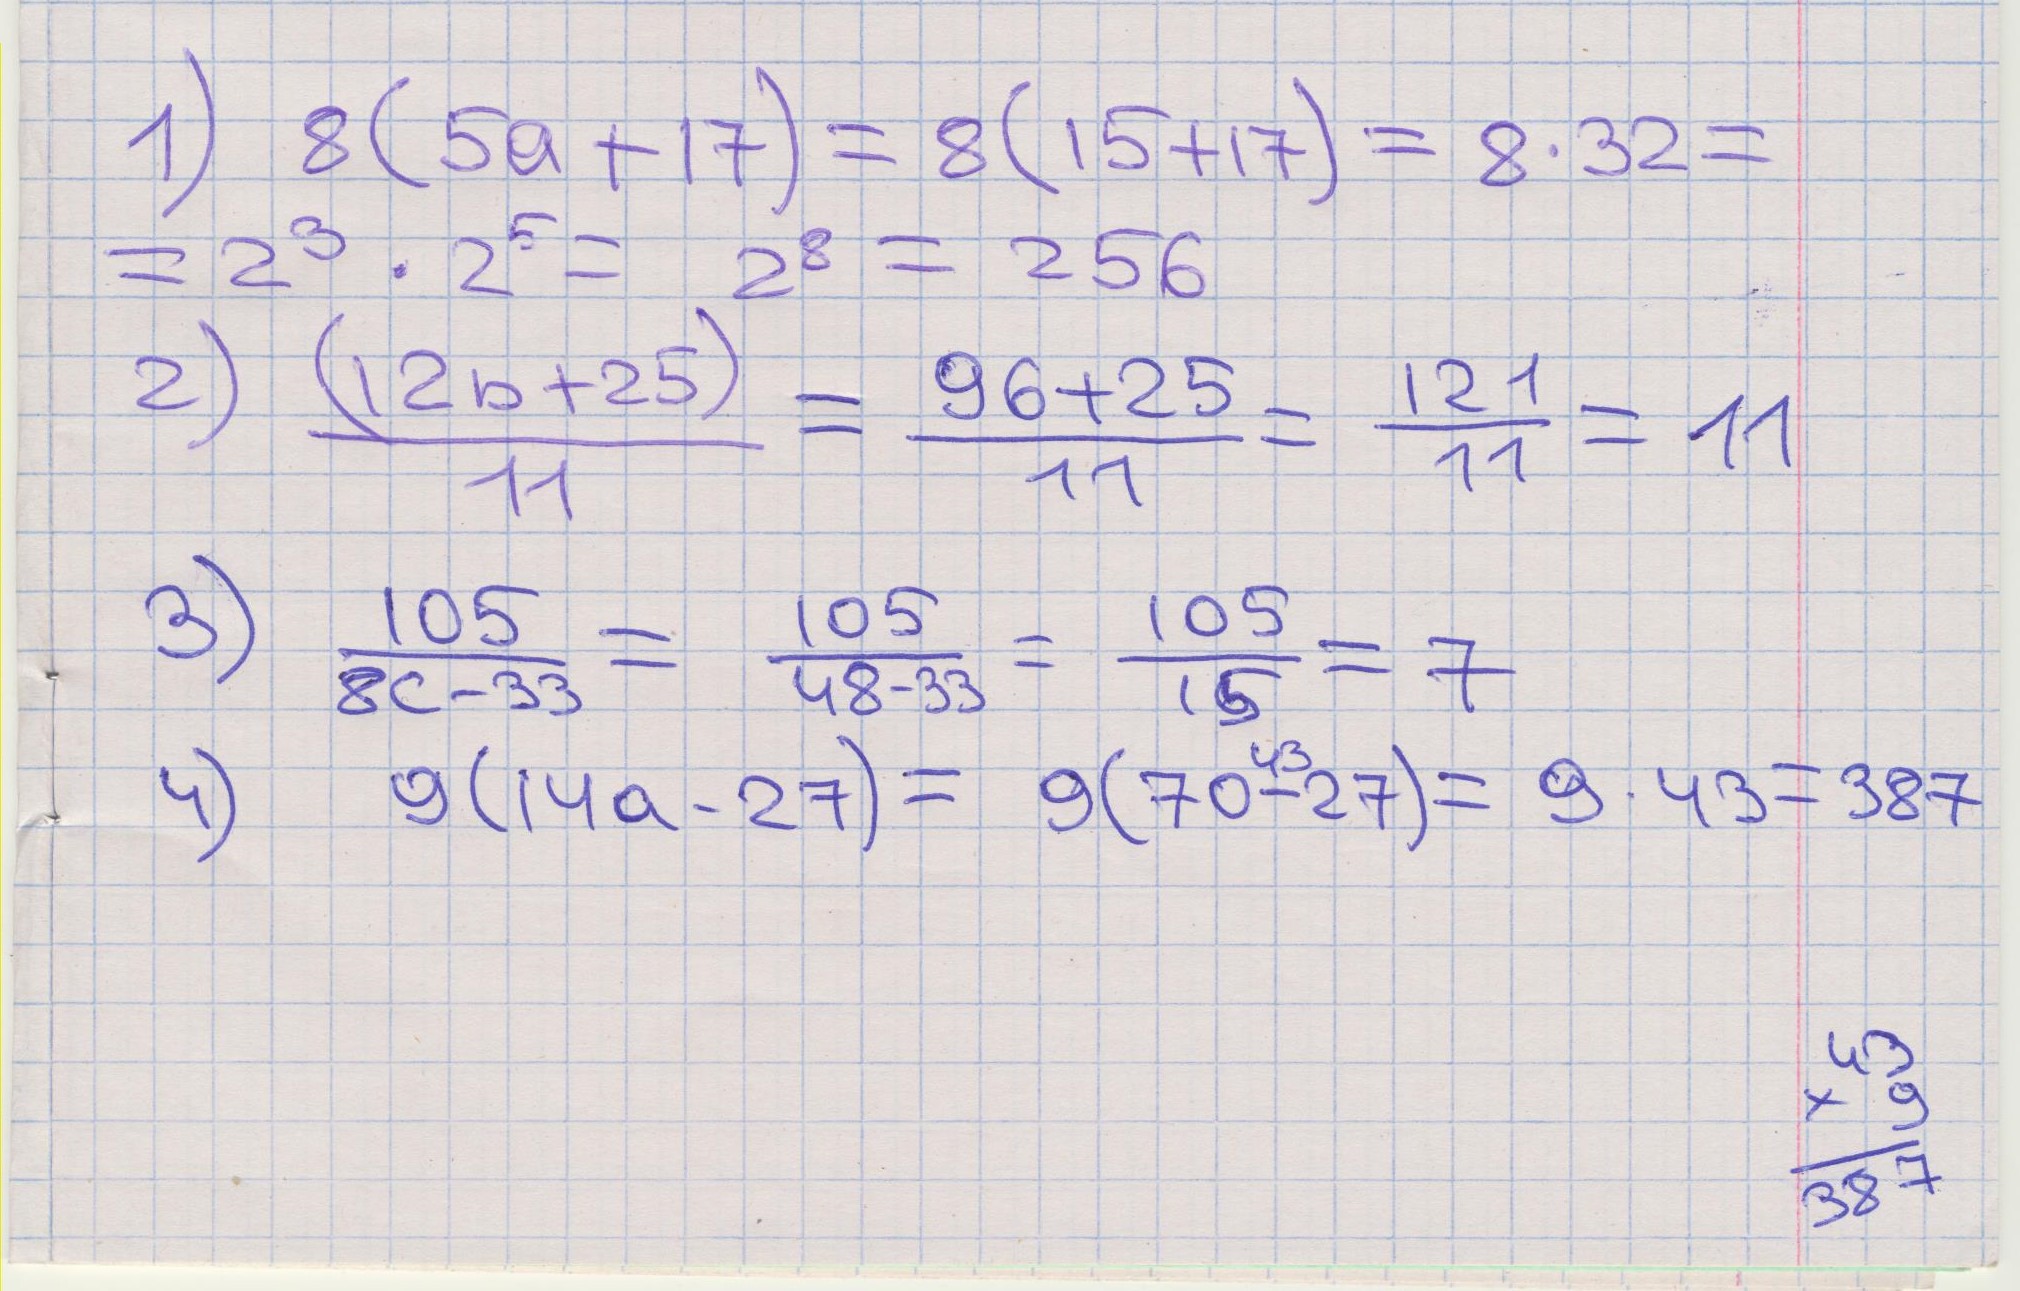 1) 8(5a+17)=8(15+17)=8·32=
=2³·2⁵= 2⁸=256
2) (12b+25)/11=(96+25)/11=121/11=11
3) 105/(8c-33)=105/(48-33)=105/15=7
43
4) 9(14a-27)=9(70-27)=9·43=387
43
× 9
387